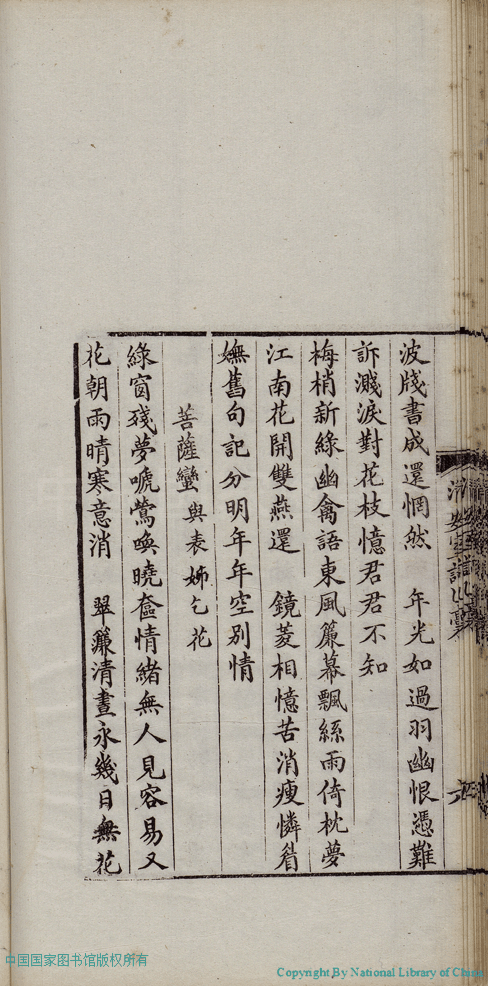 波牋書成還惘然　年光如過羽幽恨憑難
訴濺淚對花枝憶君君不知
梅梢新綠幽禽語東風簾幕飄絲雨倚枕夢
江南花開雙燕還　鏡菱相憶苦消瘦憐眉
嫵舊句記分明年年空別情
菩薩蠻 與表姊乞花
綠窗殘夢嗁鶯喚曉奩情緒無人見容易又
花朝雨晴寒意消　翠簾清晝永幾日無花
中国国家图书馆版权所有
Copyright By National Library of China